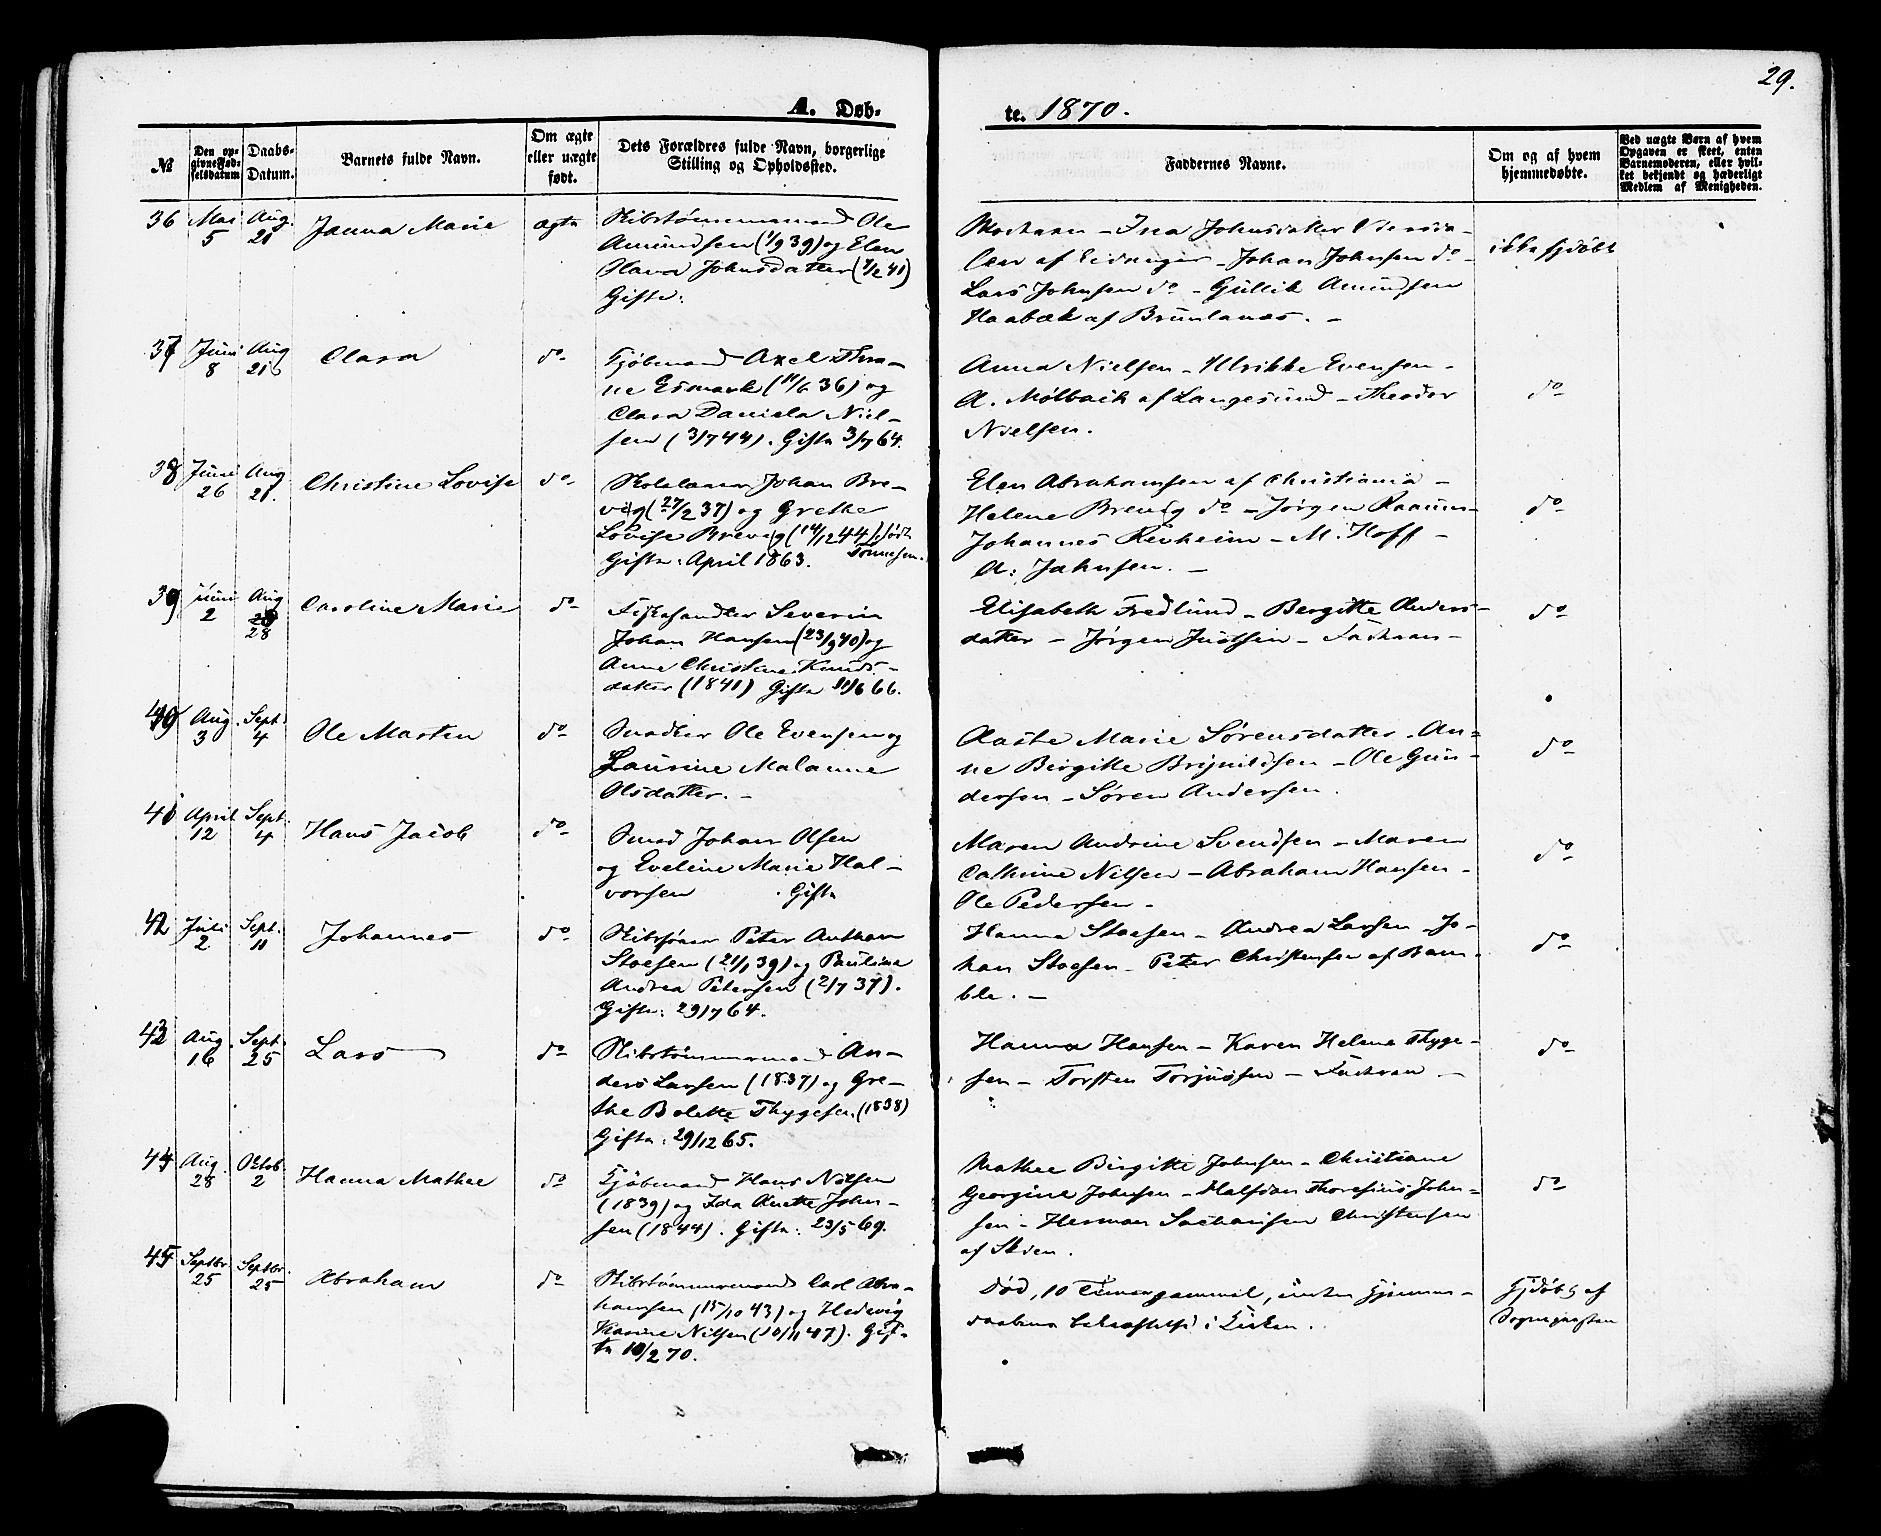 29.
A. Døb-
te. 1870.
№
Den op-
givne Fød-
selsdatum
Daabs-
Datum.
Barnets fulde Navn.
Om ægte
eller uægte
født.
Dets Forældres fulde Navn, borgerlige
Stilling og Opholdssted.
Faddernes Navne.
Om og af hvem
hjemmedøbte.
Ved uægte Børn af hvem
Opgaven er skeet, enten
Barnemoderen, eller hvil-
ket bekjendt og hæderligt
Medlem af Menigheden.
36 Mai 5 Aug. 21 Janna Marie ægte
Skibstømmermand Ole
Amundsen (1/9 39) og Elen
Maria Johnsdatter (7/2 41)
Gifte.
Ina Johnsdatter
af Eidanger - Johan Johnsen do -
Lars Johnsen do - Gullik Amundsen
Haabæk af Brunlanæs. -
ikke hjdøbt
37 Juni 8 Aug 21 Clara do
Kjøbmand Axel Thra-
ne Esmark (11/6 36) og
Clara Daniela Niel-
sen (3/7 44). Gifte 3/7 64.
Anna Nielsen - Ulrikke Evensen -
A. Mølbach af Langesund - Theodor
Nielsen.
do
38 Juni 26 Aug 21. Christine Lovise do
Skolelærer Johan Bre-
vig (27/2 37) og Grethe
Lovise Brevig (14/12 44) født
Gifte: April 1863. Tønnesen.
Elen Abrahamsen af Christiania -
Helene Brevig do - Jørgen Raaum -
Johannes Revheim - M. Hoff -
A. Jahnsen. -
do
39 Juni 2 Aug 28 Caroline Marie do
Fiskehandler Severin
Johan Hansen (23/9 40) og
Anne Christine Knuds-
datter (1841) Gifte 11/6 66.
Elisabeth Fredlund - Bergitte Anders-
datter - Jørgen Justsen - Faderen -
do
40 Aug. 3 Sept. 4 Ole Martin do
Snedker Ole Evensen og
Laurine Malanne
Olsdatter. -
Aaste Marie Sørensdatter - An-
ne Birgitte Brynildsen - Ole Gun-
dersen - Søren Andersen.
do
41 April 12 Sept. 4 Hans Jacob do
Smed Johan Olsen
og Eveline Marie Hal-
vorsen Gifte
Maren Andrine Svendsen - Maren
Cathrine Nilsen - Abraham Hansen -
Ole Pedersen -
do
42 Juli 2 Sept. 11 Johannes do
Skibsfører Peter Anthon
Stoesen (21/1 39) og Pauline
Andrea Petersen (2/7 37).
Gifte: 29/7 64.
Hanna Stoesen - Andrea Larsen - Jo-
han Stoesen - Peter Christensen af Bam-
ble. -
do
43 Aug. 16 Sept. 25 Lars do
Skibstømmermand An-
ders Larsen (1837) og Gre-
the Bolette Thygesen (1838)
Gifte: 29/12 65.
Hanna Hansen - Karen Helene Thyge-
sen - Torsten Torjussen - Faderen -
do
44 Aug. 28 Oktob. 2 Hanna Mathee do
Kjøbmand Hans Nilsen
(1839) og Ida Anette John-
sen (1844). Gifte: 23/5 69.
Mathee Birgitte Johnsen - Christiane
Georgine Johnsen - Halfdan Thoresius John-
sen - Herman Sachariasen Christensen
af Skien.
do
45 Septbr. 25 Septbr. 25 Abraham do
Skibstømmermand Carl Abra-
hamsen (15/10 43) og Hedevig
Karine Nilsen (10/1 47). Gif-
te 10/2 70.
Død, 10 Timer gammel, uden Hjemme-
daabens bekræftelse i Kirken.
Hjdøbt af
Sognepræsten